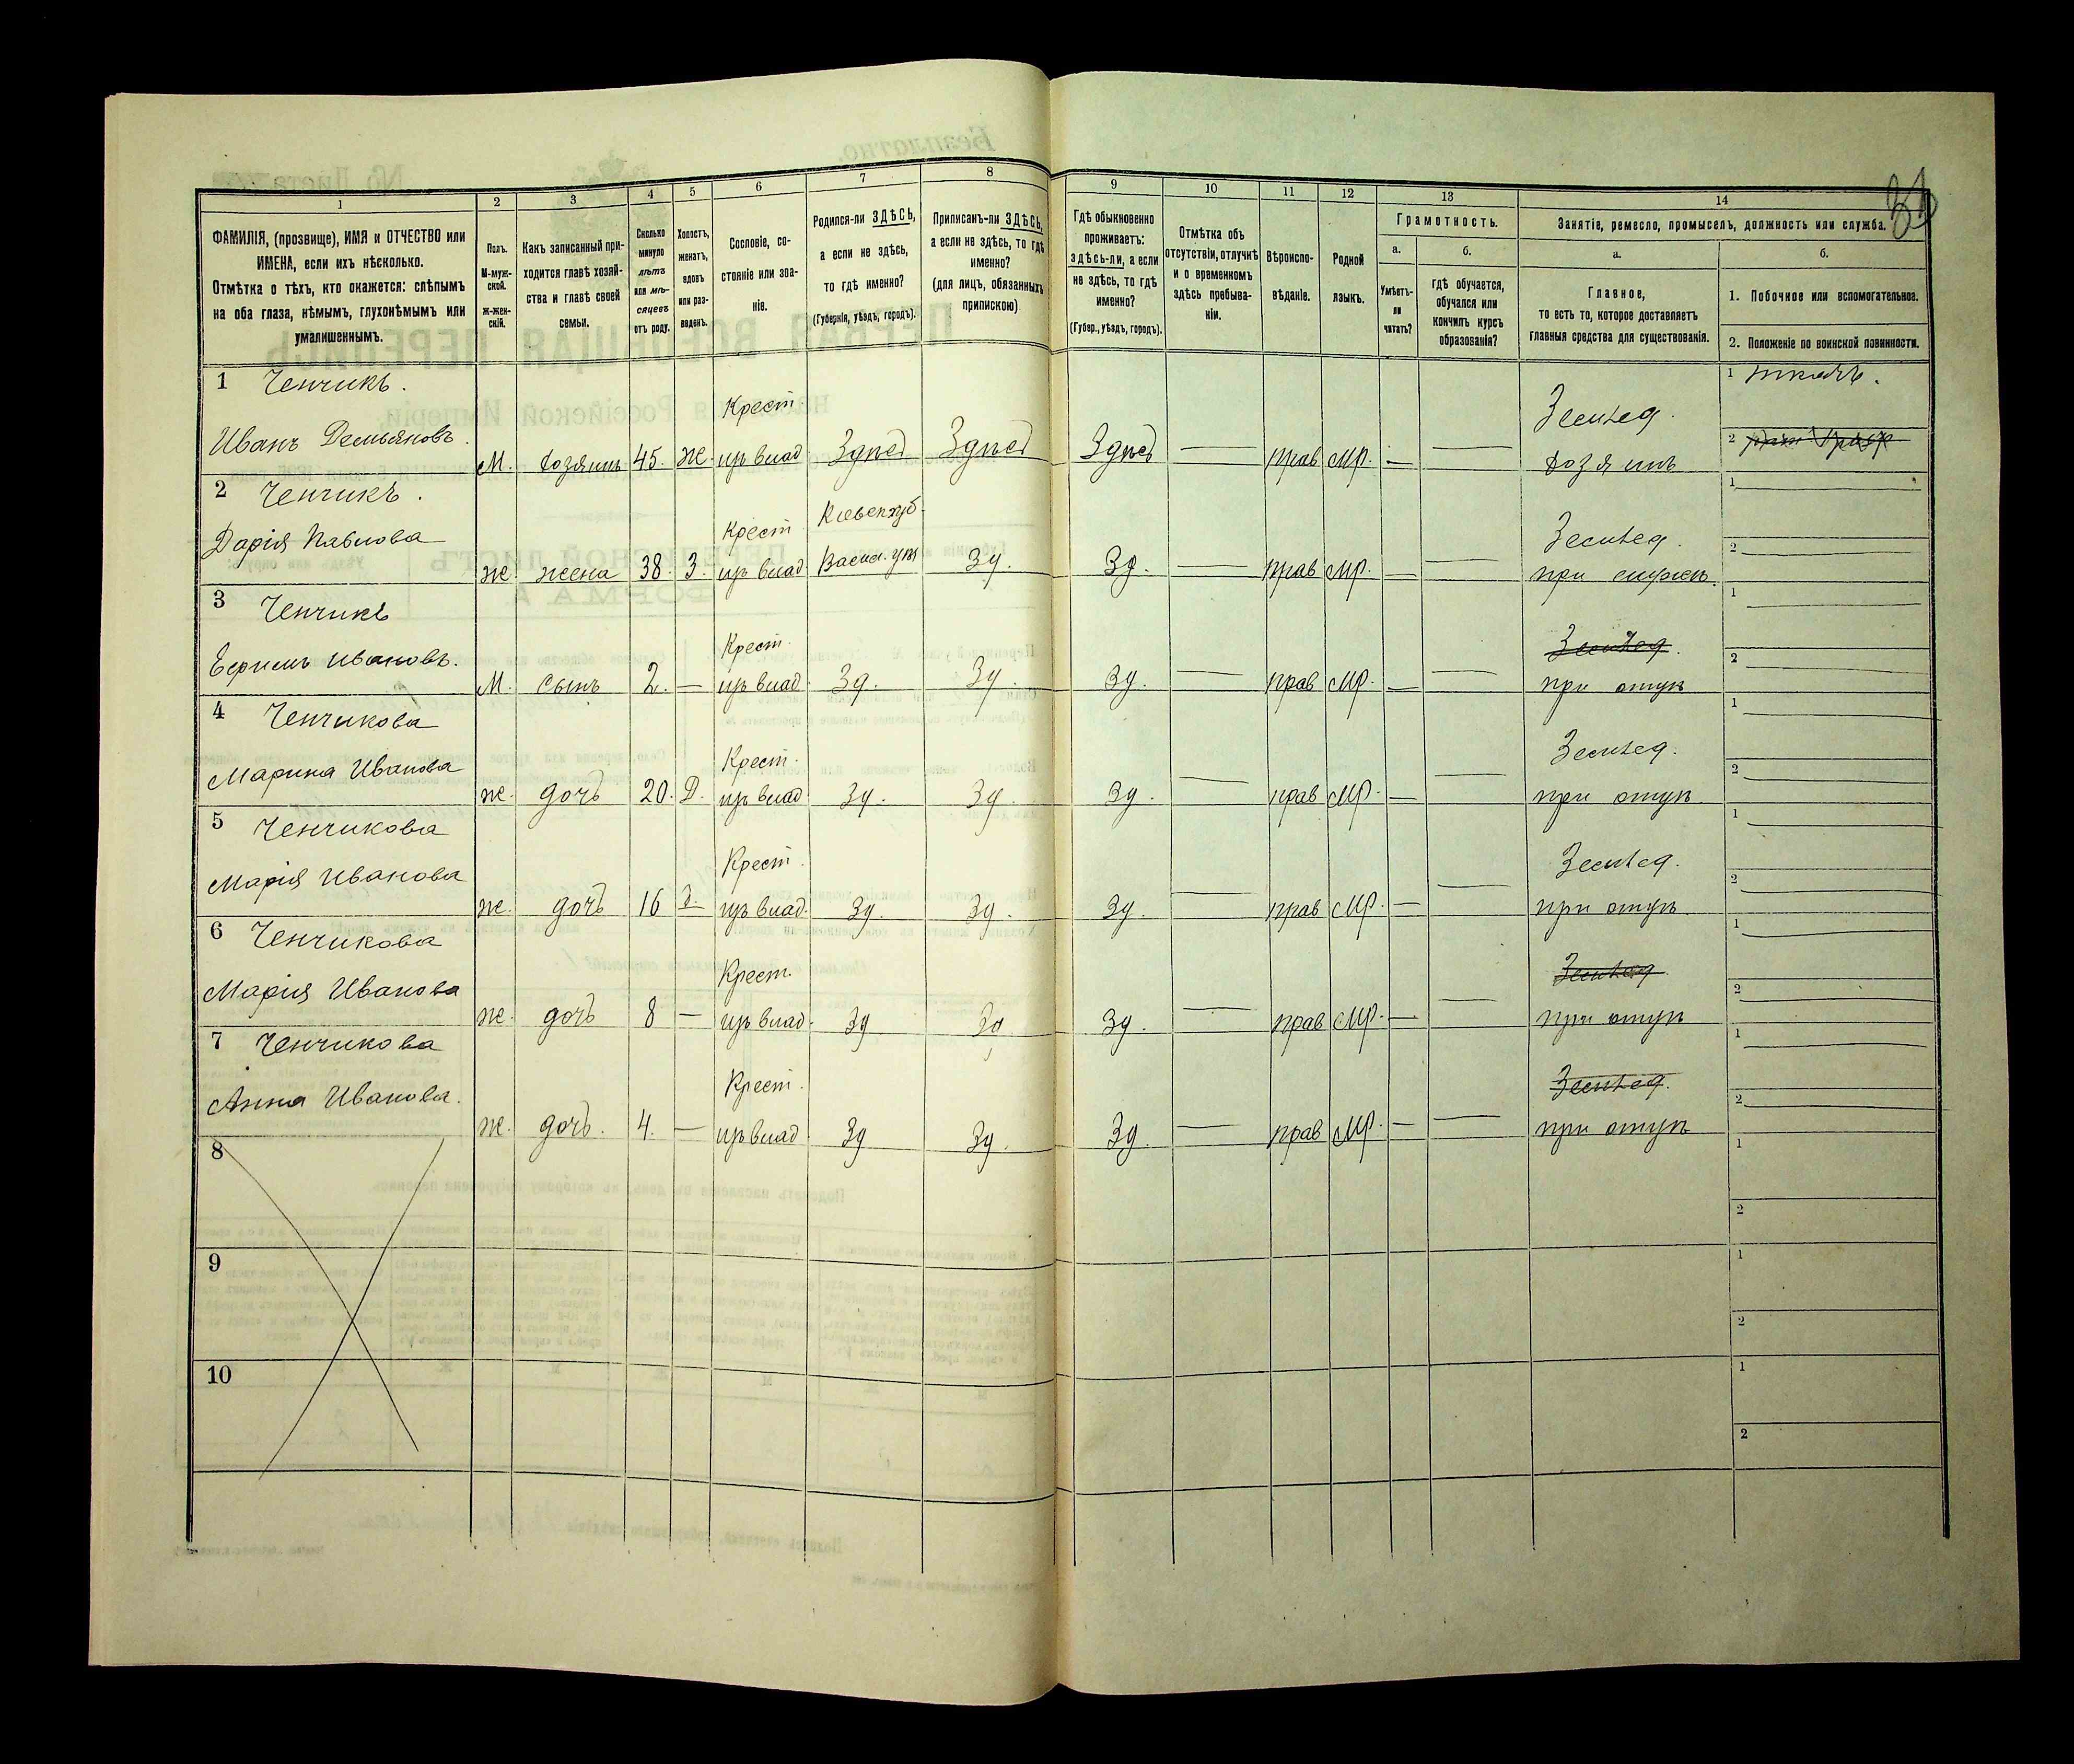 31
1 2 3 4 5 6 7 8 9 10 11 12 13 14
ФАМИЛІЯ, (прозвище), ИМЯ и ОТЧЕСТВО или
ИМЕНА, если ихъ нѣсколько.
Отмѣтка о тѣхъ, кто окажется: слѣпымъ
на оба глаза, нѣмымъ, глухонѣмымъ или
умалишеннымъ.
Полъ.
М-муж-
ской.
Ж-жен-
скій.
Какъ записанный при-
ходится главѣ хозяй-
ства и главѣ своей
семьи.
Сколько
минуло
лѣтъ
или мѣ-
сяцевъ
отъ роду.
Холостъ,
женатъ,
вдовъ
или раз-
веденъ.
Сословіе, со-
стояніе или зва-
ніе.
Родился-ли ЗДѢСЬ,
а если не здѣсь,
то гдѣ именно?
(Губернія, уѣздъ, городъ).
Приписанъ-ли ЗДѢСЬ,
а если не здѣсь, то гдѣ
именно?
(для лицъ, обязанныхъ
припискою)
Гдѣ обыкновенно
проживаетъ:
здѣсь-ли, а если
не здѣсь, то гдѣ
именно?
(Губер., уѣздъ, городъ).
Отмѣтка объ
отсутствіи, отлучкѣ
и о временномъ
здѣсь пребыва-
ніи.
Вѣроиспо-
вѣданіе.
Родной
языкъ.
Грамотность.
а.
Умѣетъ-
ли
читать?
б.
гдѣ обучается,
обучался или
кончилъ курсъ
образованія?
Занятіе, ремесло, промыселъ, должность или служба.
а.
Главное,
то есть то, которое доставляетъ
главныя средства для существованія.
б.
1. Побочное или вспомогательное.
2. Положеніе по воинской повинности.
1 Ченчикъ.
Иванъ Демьяновъ.
М. хозяинъ 45. Ж. Крест
Здѣсь Здѣсь Здѣсь — прав мр. — —
Землед.
хозяинъ
1 ткачъ.
2
2 Ченчикъ.
Дарія Павлова
ж. жена 38. З. Крест
Кіевск губ.
Васил. уѣз
Зд. Зд. — прав мр. — —
Землед.
при мужѣ.
1
2
3 Ченчикъ
Ивановъ.
М. сынъ 2. — Крест.
Зд. Зд. Зд. — прав мр. — —
Землед.
при отцѣ
1
2
4 Ченчикова
Марина Иванова
ж. дочь 20. Д. Крест.
Зд. Зд. Зд. — прав мр. — —
Землед.
при отцѣ
1
2
5 Ченчикова
Марія Иванова
ж. дочь 16 Д. Крест.
Зд. Зд. Зд. — прав мр. — —
Землед.
при отцѣ.
1
2
6 Ченчикова
Марія Иванова
ж. дочь 8 — Крест.
Зд Зд Зд. — прав мр. — —
Землед.
при отцѣ
1
2
7 Ченчикова
Анна Иванова.
ж. дочь. 4. — Крест.
Зд Зд. Зд. — прав мр. — —
Землед.
при отцѣ
1
2
8
1
2
9
1
2
10
1
2